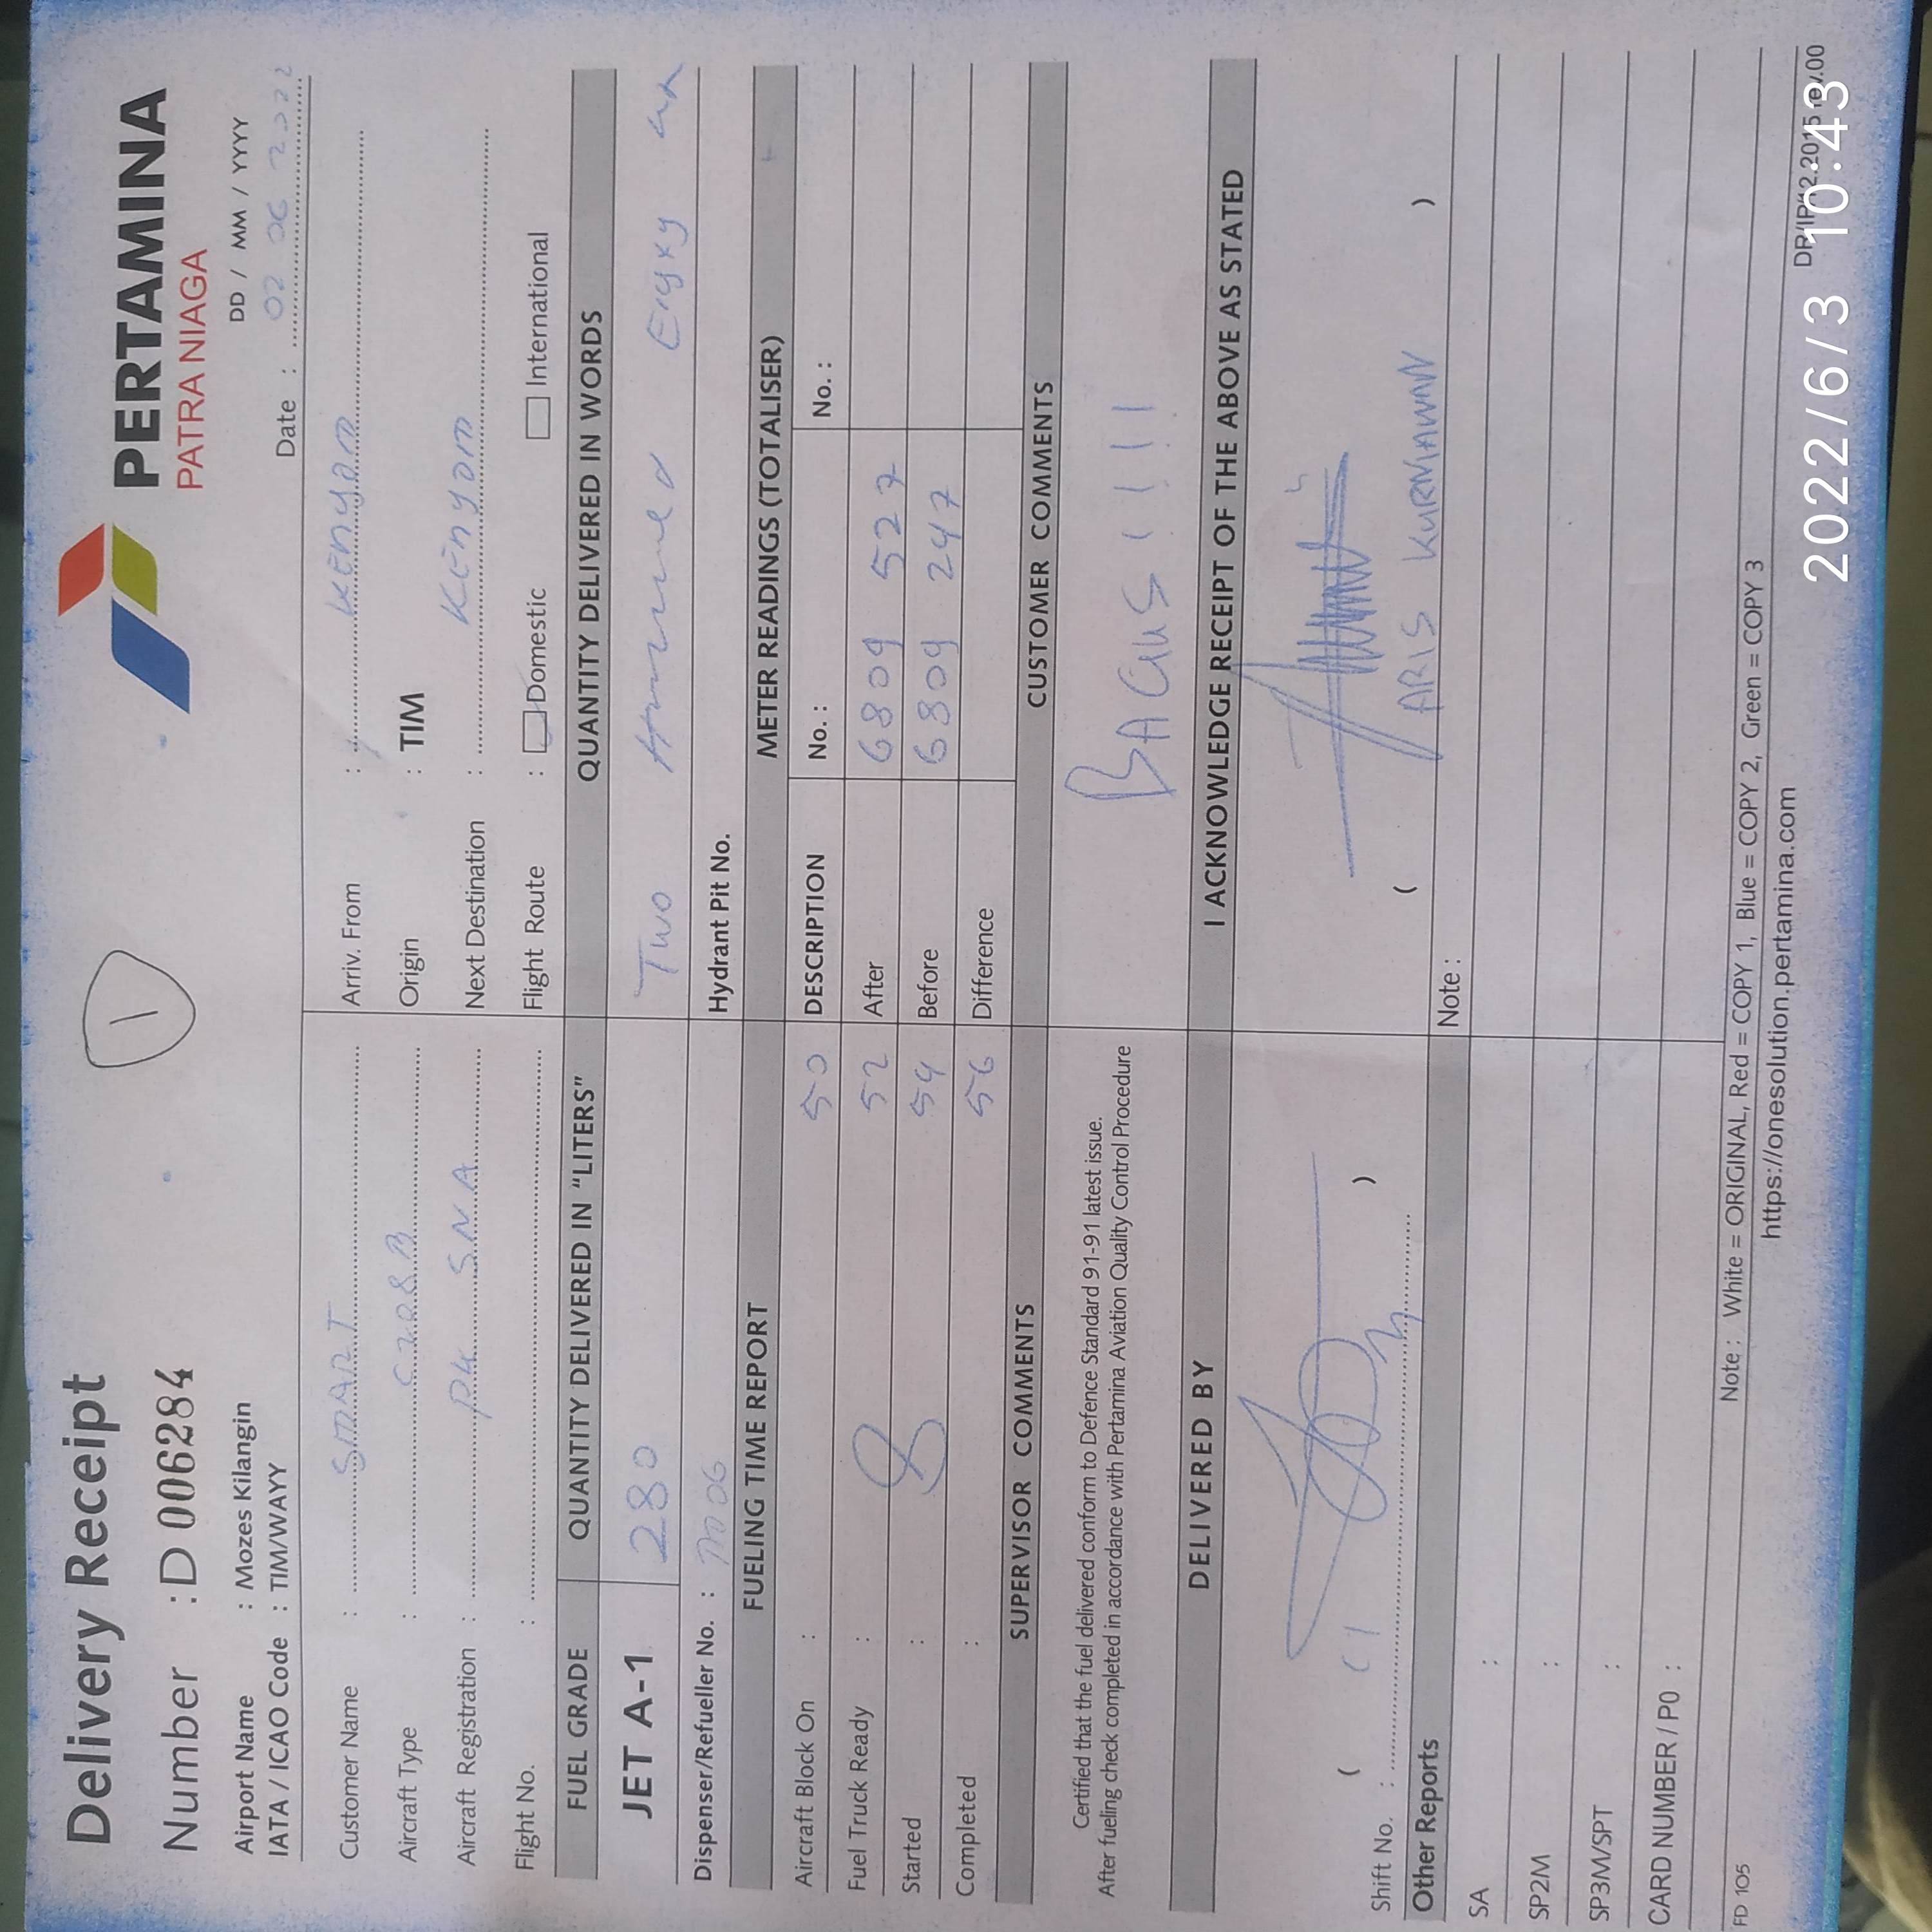 Delivery Receipt
Number : D 006284
1
PERTAMINA
PATRA NIAGA
Airport Name : Mozes Kilangin
IATA / ICAO Code : TIM/WAYY
DD / MM / YYYY
Date : 02 06 2022
Customer Name : SMART
Aircraft Type : C208B
Aircraft Registration : PK SNA
Flight No. :
Arriv. From : Kenyam
Origin : TIM
Next Destination : Kenyam
Flight Route : Domestic International
FUEL GRADE QUANTITY DELIVERED IN "LITERS" QUANTITY DELIVERED IN WORDS
JET A-1 280 Two Hundred Eigty
Dispenser/Refueller No. : Hydrant Pit No.
FUELING TIME REPORT METER READINGS (TOTALISER)
Aircraft Block On : 50 DESCRIPTION No. : No. :
Fuel Truck Ready : 52 After 6809 527
Started : 54 Before 6809 247
Completed : 56 Difference
SUPERVISOR COMMENTS CUSTOMER COMMENTS
Certified that the fuel delivered conform to Defence Standard 91-91 latest issue.
After fueling check completed in accordance with Pertamina Aviation Quality Control Procedure
BAGUS !!!!
DELIVERED BY I ACKNOWLEDGE RECEIPT OF THE ABOVE AS STATED
( ) ( ARIS KURNIAWAN )
Shift No. :
Other Reports Note :
SA :
SP2M :
SP3M/SPT :
CARD NUMBER / P0 :
FD 105 Note : White = ORIGINAL, Red = COPY 1, Blue = COPY 2, Green = COPY 3
https://onesolution.pertamina.com
2022/6/3 10:43